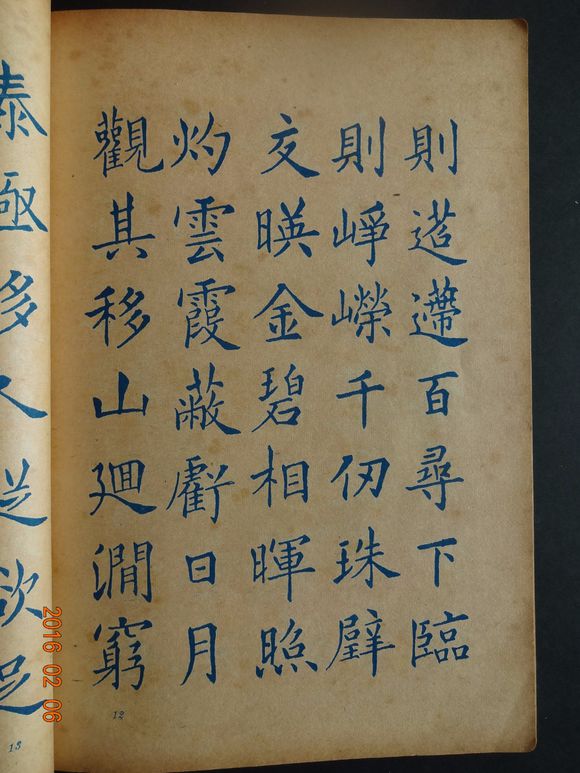 則迢遰百尋下臨
則崢嶸千仞珠壁
交暎金碧相暉照
灼雲霞蔽虧日月
觀其移山廻澗窮
12
泰極侈人從欲足
13
2016 02 06